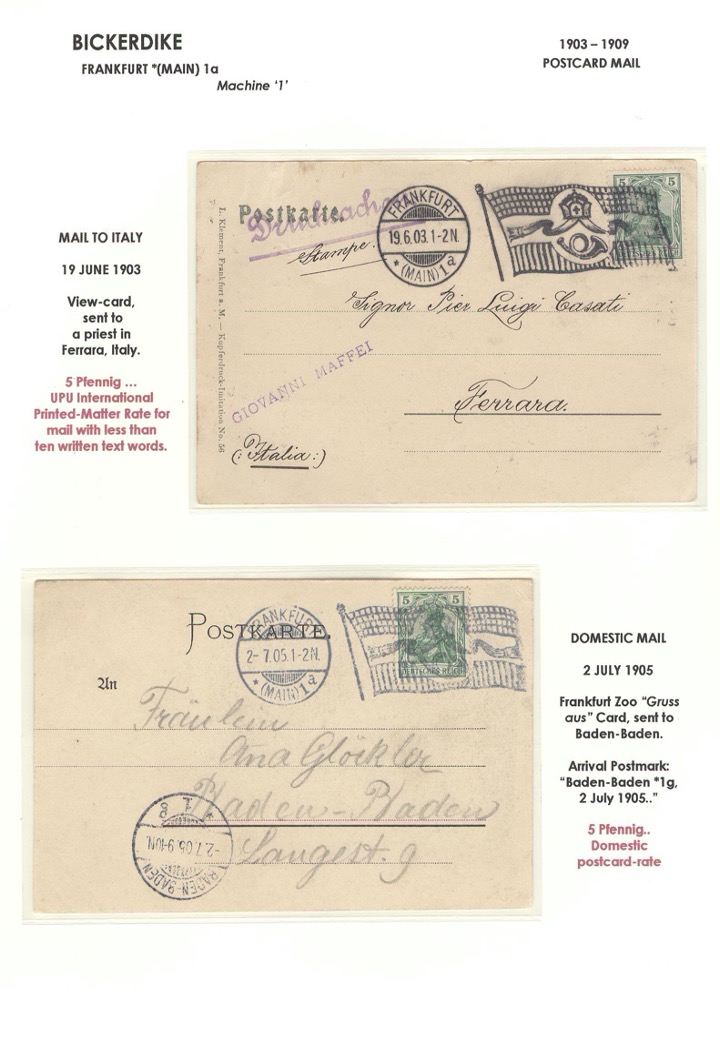 BICKERDIKE
FRANKFURT *(MAIN) 1a
Machine ‘1’
1903 – 1909
POSTCARD MAIL
MAIL TO ITALY
19 JUNE 1903
View-card,
sent to
a priest in
Ferrara, Italy.
5 Pfennig …
UPU International
Printed-Matter Rate for
mail with less than
ten written text words.
L. Klement, Frankfurt a. M. — Kupferdruck-Imitation No. 56
Postkarte.
Drucksache
Stampe.
FRANKFURT
19.6.03.1-2N.
* (MAIN) 1a
5 5
Signor Pier Luigi Casati
GIOVANNI MAFFEI
Ferrara.
(: Italia :)
POSTKARTE.
FRANKFURT
2-7.05.1-2N.
* (MAIN) 1a
5 5
DEUTSCHES REICH
An
Fräulein
Ana Glöckler
Baden-Baden
Langest. 9
BADEN-BADEN
-2.7.05.9-10N.
* 1 g
DOMESTIC MAIL
2 JULY 1905
Frankfurt Zoo “Gruss
aus” Card, sent to
Baden-Baden.
Arrival Postmark:
“Baden-Baden *1g,
2 July 1905..”
5 Pfennig..
Domestic
postcard-rate